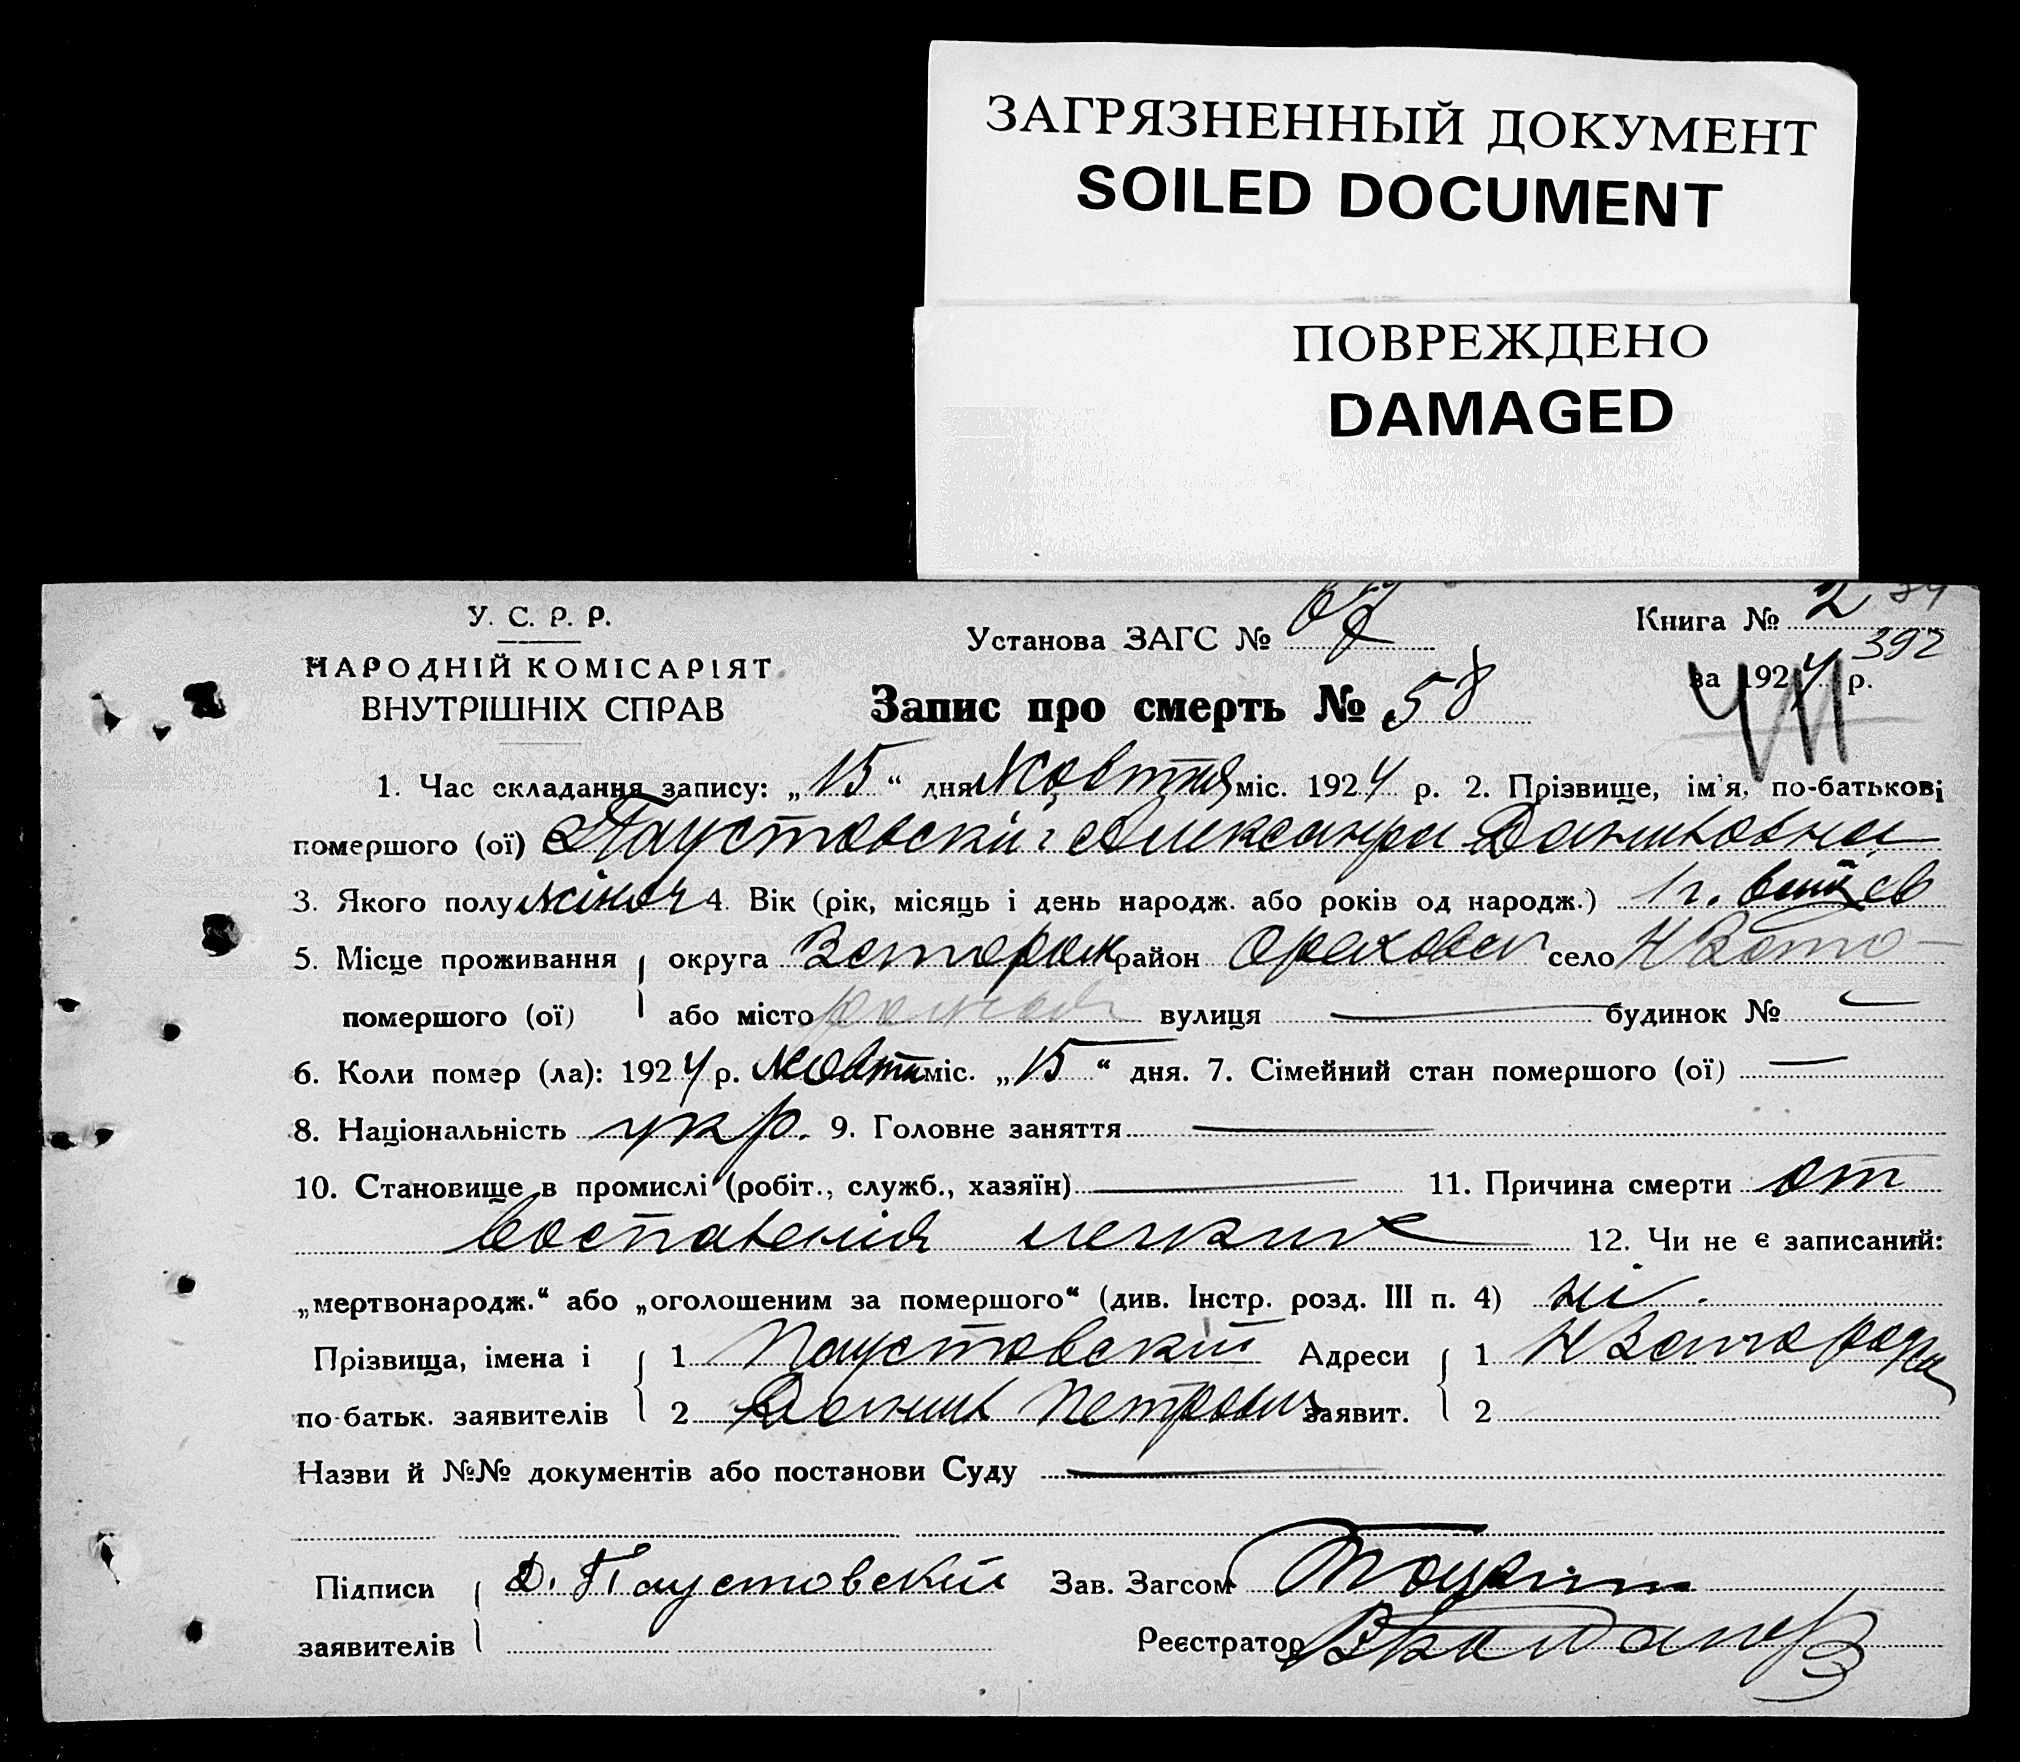 ЗАГРЯЗНЕННЫЙ ДОКУМЕНТ
SOILED DOCUMENT
ПОВРЕЖДЕНО
DAMAGED
У. С. Р. Р.
НАРОДНІЙ КОМІСАРІЯТ
ВНУТРІШНІХ СПРАВ
Установа ЗАГС №
Книга № 2
392
за 1924 р.
Запис про смерть № 58
1. Час складання запису: „15“ дня Жовтня міс. 1924 р. 2. Прізвище, ім'я, по-батькові
помершого (ої) Паустовскій Александра Даниловна
3. Якого полу жіноч 4. Вік (рік, місяць і день народж. або років од народж.) 1 г.
5. Місце проживання { округа Запорож район Орехове село Н Запо-
помершого (ої) або місто вулиця — будинок № —
6. Коли помер (ла): 1924 р. Жовтн міс. „15“ дня. 7. Сімейний стан помершого (ої) —
8. Національність укр. 9. Головне заняття —
10. Становище в промислі (робіт., служб., хазяїн) — 11. Причина смерти от
воспаленія легких 12. Чи не є записаний:
„мертвонародж.“ або „оголошеним за помершого“ (див. Інстр. розд. III п. 4) ні.
Прізвища, імена і { 1 Паустовскій Адреси { 1 Н
по-батьк. заявителів 2 Данил Петрович заявит. 2
Назви й №№ документів або постанови Суду —
Підписи { Д. Паустовский Зав. Загсом
заявителів Реєстратор